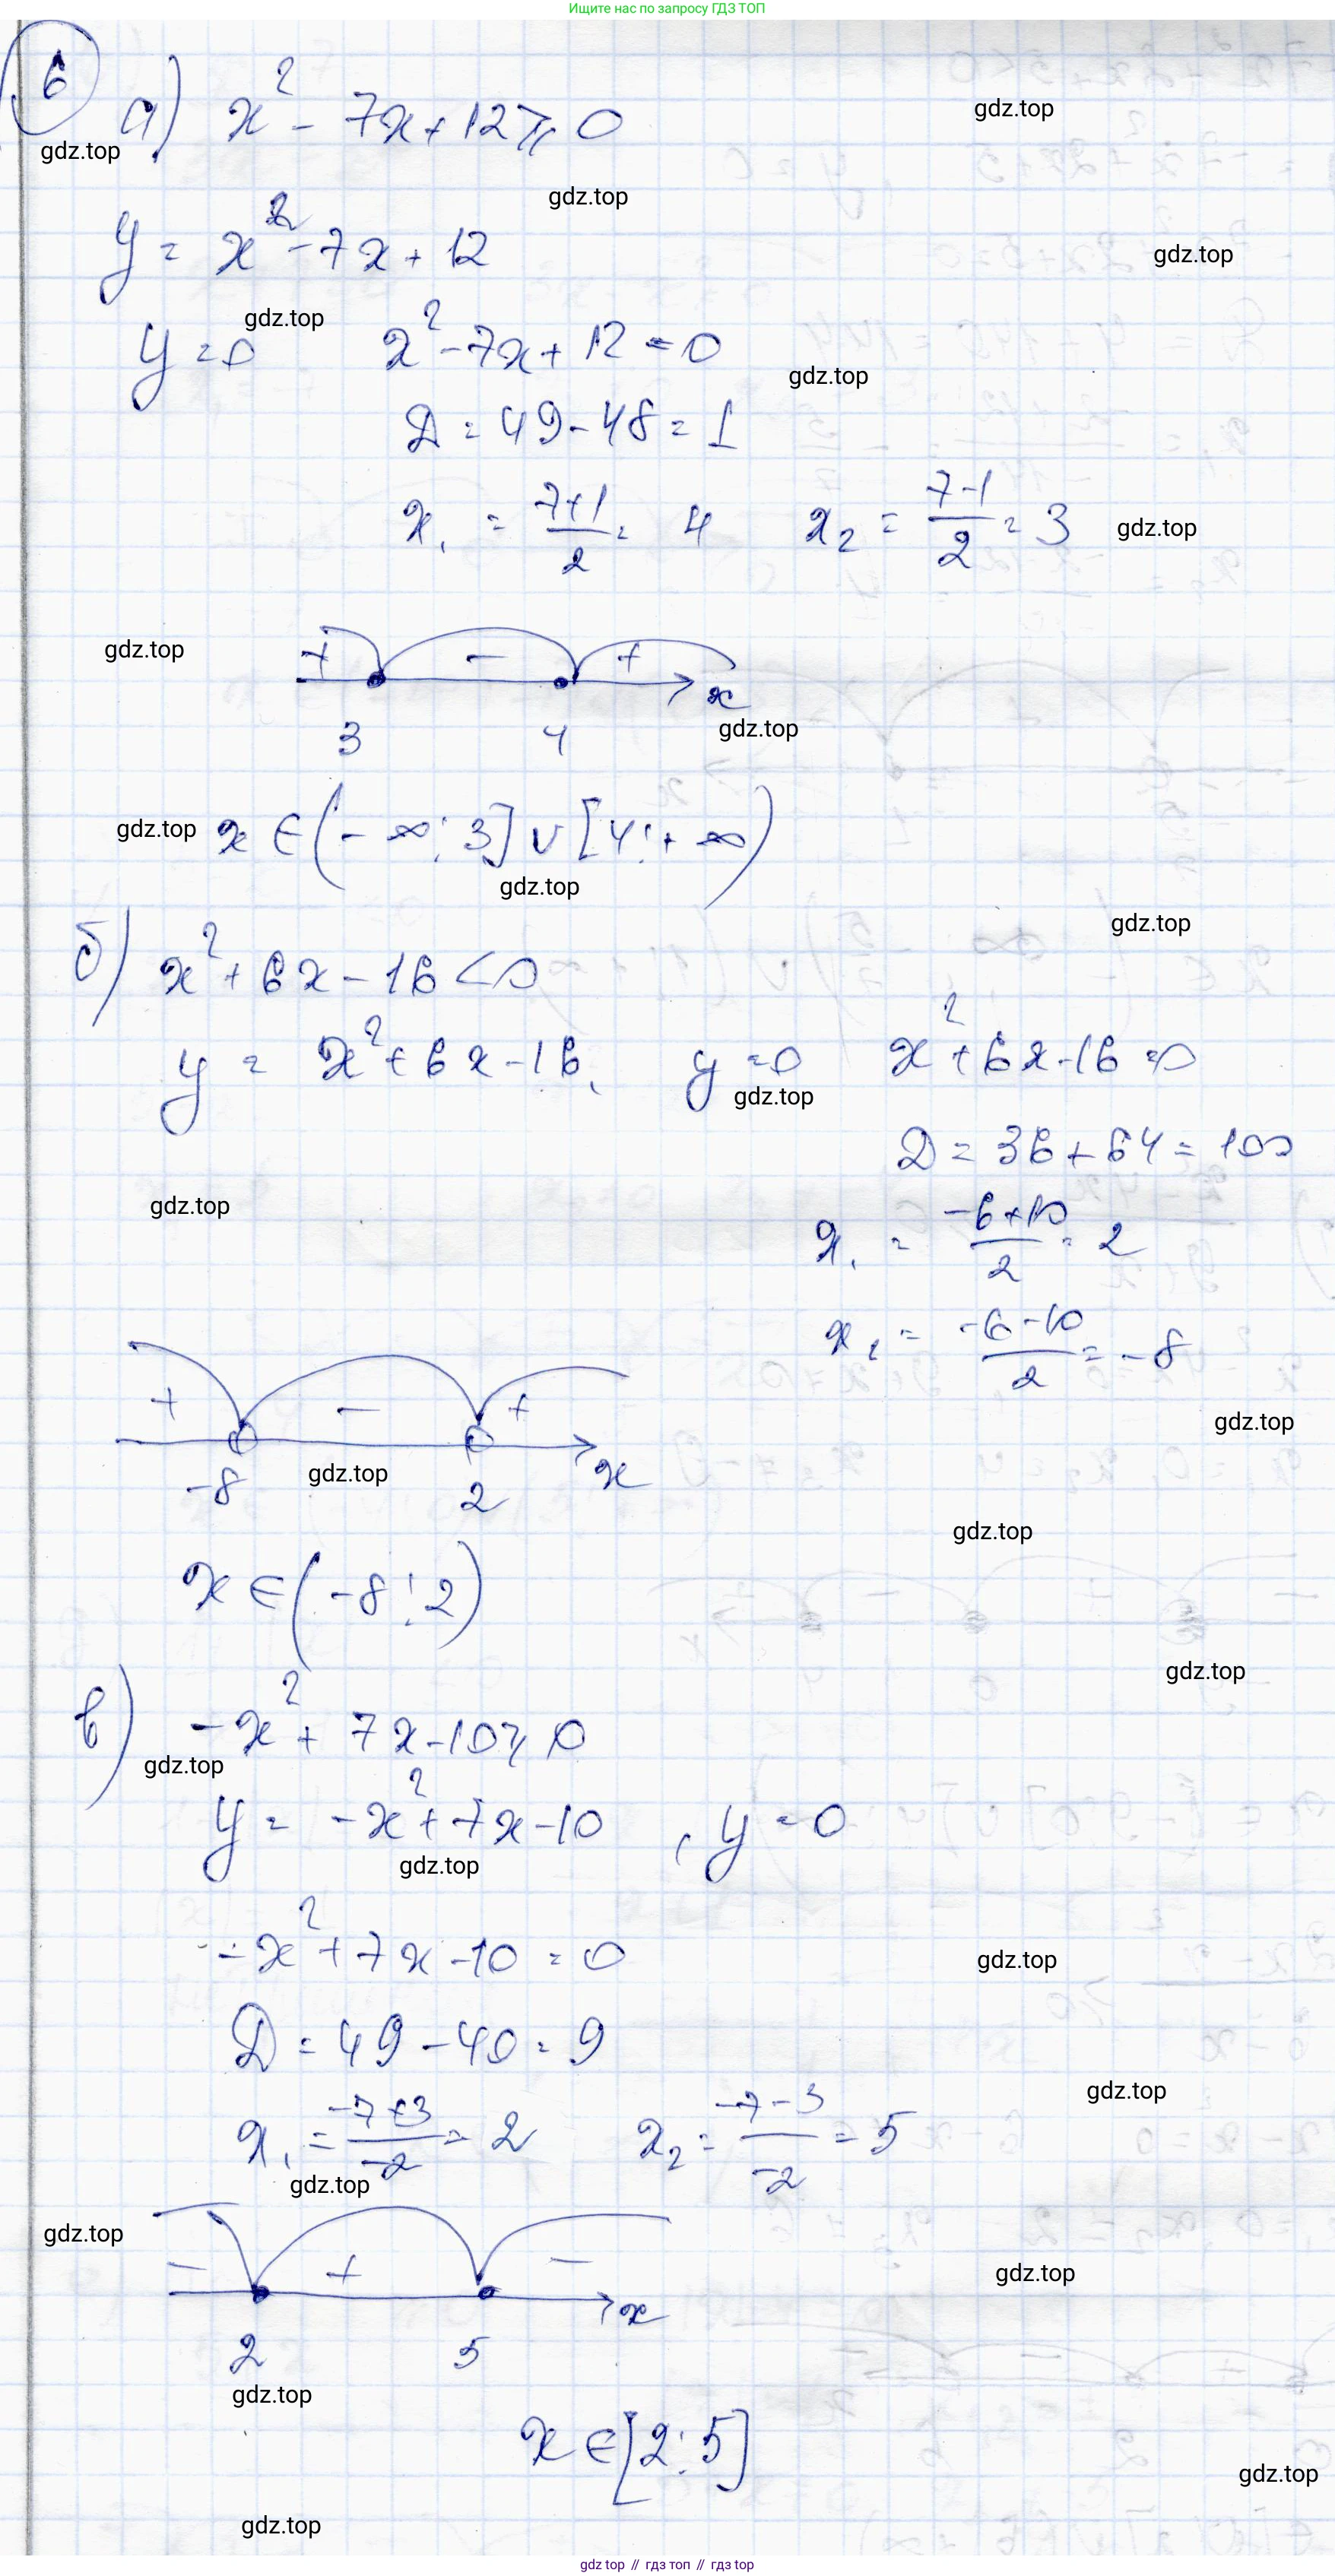 Ищите нас по запросу ГДЗ ТОП
6
а) x² - 7x + 12 ⩾ 0
gdz.top
gdz.top
gdz.top
y = x² - 7x + 12
gdz.top
gdz.top
y = 0 x² - 7x + 12 = 0
gdz.top
D = 49 - 48 = 1
x₁ = (7+1)/2 = 4 x₂ = (7-1)/2 = 3
gdz.top
gdz.top
+ - + x
3 4
gdz.top
gdz.top
x ∈ (-∞; 3] ∪ [4; +∞)
gdz.top
gdz.top
б) x² + 6x - 16 < 0
y = x² + 6x - 16, y = 0 x² + 6x - 16 = 0
gdz.top
D = 36 + 64 = 100
gdz.top
x₁ = (-6+10)/2 = 2
x₂ = (-6-10)/2 = -8
+ - +
gdz.top
-8 2 x
gdz.top
gdz.top
x ∈ (-8; 2)
gdz.top
в) -x² + 7x - 10 ⩾ 0
gdz.top
y = -x² + 7x - 10, y = 0
gdz.top
-x² + 7x - 10 = 0
gdz.top
D = 49 - 40 = 9
gdz.top
x₁ = (-7+3)/-2 = 2 x₂ = (-7-3)/-2 = 5
gdz.top
gdz.top
- + -
gdz.top
x
2 5
gdz.top
x ∈ [2; 5]
gdz.top
gdz.top
gdz top // гдз топ // гдз top